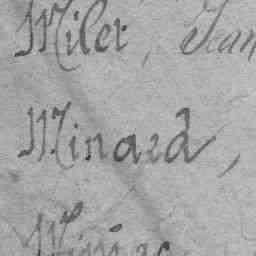 Miler, Jean
Minard,